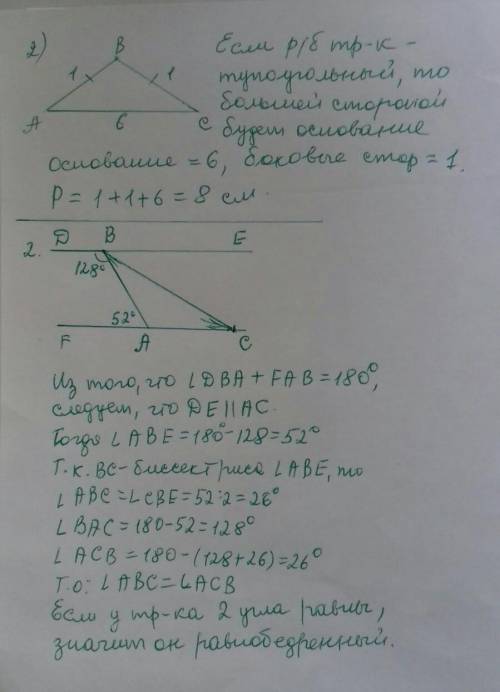 2)
B
1
1
A
6
C
Если р/б тр-к -
тупоугольный, то
большей стороной
будет основание
основание = 6, боковые стор = 1.
P = 1+1+6 = 8 см.
2.
D B E
128°
52°
F A C
Из того, что ∠DBA + FAB = 180°,
следует, что DE || AC.
Тогда ∠ABE = 180° - 128 = 52°
Т.к. BC - биссектриса ∠ABE, то
∠ABC = ∠CBE = 52:2 = 26°
∠BAC = 180 - 52 = 128°
∠ACB = 180 - (128 + 26) = 26°
Т.о: ∠ABC = ∠ACB
Если у тр-ка 2 угла равны,
значит он равнобедренный.